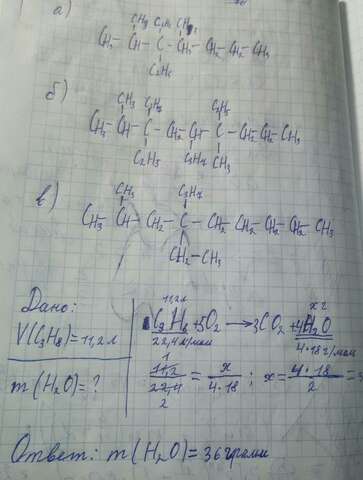 а)
CH₃ C₂H₅ CH₃
CH₃-CH-C-CH₂-CH₂-CH₂-CH₃
C₂H₅
б)
CH₃ C₂H₅ C₂H₅
CH₃-CH-C-CH₂-CH-C-CH₂-CH₂-CH₃
C₂H₅ C₃H₇ CH₃
в)
CH₃ C₃H₇
CH₃-CH-CH₂-C-CH₂-CH₂-CH₂-CH₂-CH₃
CH₂-CH₃
Дано:
V(C₃H₈)=11,2л
m(H₂O)=?
11,2л x г
C₃H₈+5O₂→3CO₂+4H₂O
22,4л/моль 4·18г/моль
1
11,2/22,4=x/4·18; x=4·18/2=
2
Ответ: m(H₂O)=36грамм